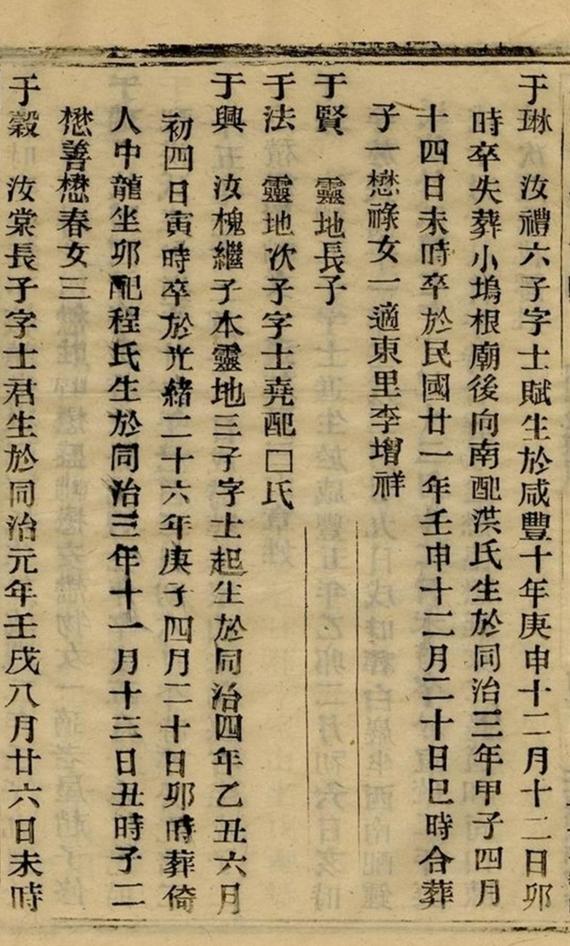 于琳汝禮六子字士賦生於咸豐十年庚申十二月十二日卯
時卒失葬小塢根廟後向南配洪氏生於同治三年甲子四月
十四日未時卒於民國廿一年壬申十二月二十日巳時合葬
子一懋祿女一適東里李增祥
于賢 靈地長子
于法 靈地次子字士堯配□氏
于興 汝槐繼子本靈地三子字士起生於同治四年乙丑六月
初四日寅時卒於光緒二十六年庚子四月二十日卯時葬倚
人中龍坐卯配程氏生於同治三年十一月十三日丑時子二
懋善懋春女三
于穀 汝棠長子字士君生於同治元年壬戌八月廿六日未時